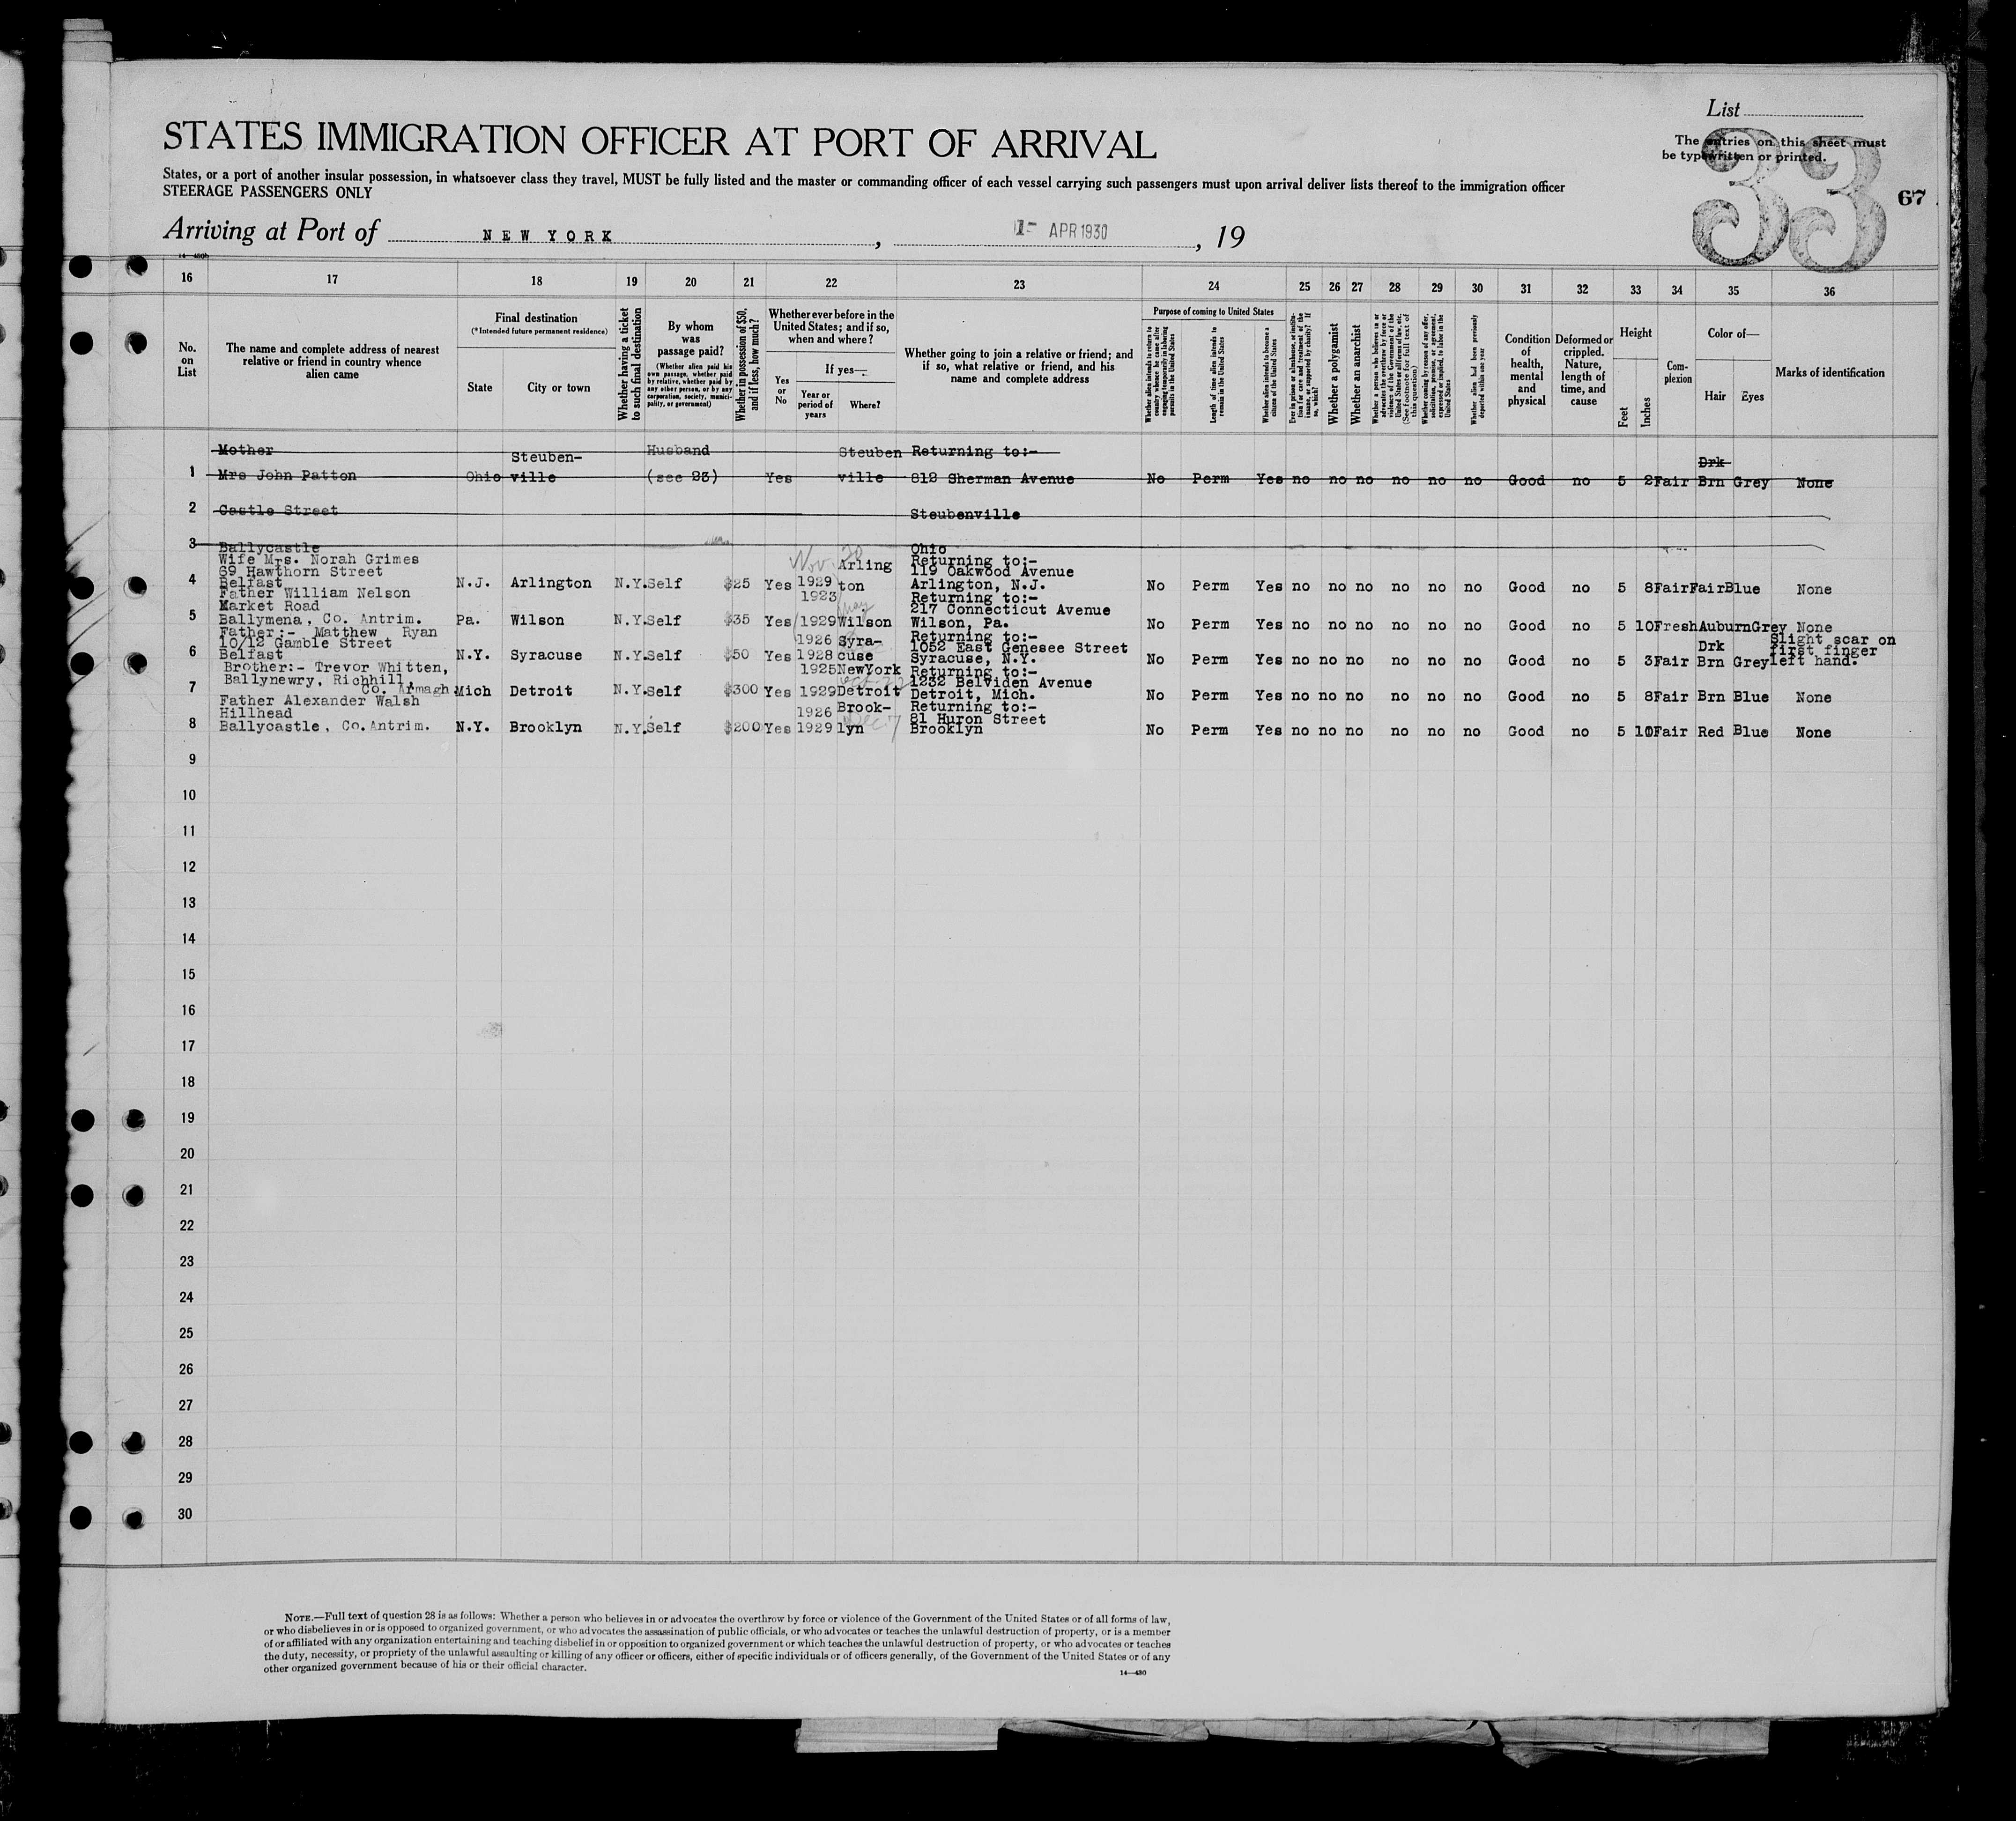 List
The entries on this sheet must
be typewritten or printed.
33
67
STATES IMMIGRATION OFFICER AT PORT OF ARRIVAL
States, or a port of another insular possession, in whatsoever class they travel, MUST be fully listed and the master or commanding officer of each vessel carrying such passengers must upon arrival deliver lists thereof to the immigration officer
STEERAGE PASSENGERS ONLY
Arriving at Port of NEW YORK, APR 1930, 19
16 17 18 19 20 21 22 23 24 25 26 27 28 29 30 31 32 33 34 35 36
No. on List
The name and complete address of nearest relative or friend in country whence alien came
Final destination
(*Intended future permanent residence)
State
City or town
Whether having a ticket to such final destination
By whom was passage paid?
(Whether alien paid his own passage, whether paid by relative, whether paid by any other person, or by any corporation, society, municipality, or government)
Whether in possession of $50, and if less, how much?
Whether ever before in the United States; and if so, when and where?
Yes or No
If yes—
Year or period of years
Where?
Whether going to join a relative or friend; and if so, what relative or friend, and his name and complete address
Purpose of coming to United States
Whether alien intends to return to country whence he came after engaging temporarily in laboring pursuits in the United States
Length of time alien intends to remain in the United States
Whether alien intends to become a citizen of the United States
Ever in prison or almshouse, or institution for care and treatment of the insane, or supported by charity? If so, which?
Whether a polygamist
Whether an anarchist
Whether a person who believes in or advocates the overthrow by force or violence of the Government of the United States or all forms of law, etc. (See footnote for full text of this question)
Whether coming by reason of any offer, solicitation, promise, or agreement, expressed or implied, to labor in the United States
Whether alien had been previously deported within one year
Condition of health, mental and physical
Deformed or crippled. Nature, length of time, and cause
Height
Feet
Inches
Complexion
Color of—
Hair
Eyes
Marks of identification
Mother Steuben- Husband Steuben Returning to:- Drk
1 Mrs John Patton Ohio ville (see 23) Yes ville 812 Sherman Avenue No Perm Yes no no no no no no Good no 5 2 Fair Brn Grey None
2 Castle Street Steubenville
3 Ballycastle Ohio
Wife Mrs. Norah Grimes Nov. 20 Arling Returning to:-
69 Hawthorn Street 119 Oakwood Avenue
4 Belfast N.J. Arlington N.Y. Self $25 Yes 1929 ton Arlington, N.J. No Perm Yes no no no no no no Good no 5 8 Fair Fair Blue None
Father William Nelson 1923 Returning to:-
Market Road May 217 Connecticut Avenue
5 Ballymena, Co. Antrim. Pa. Wilson N.Y. Self $35 Yes 1929 Wilson Wilson, Pa. No Perm Yes no no no no no no Good no 5 10 Fresh Auburn Grey None
Father:- Matthew Ryan 1926 Syra- Returning to:- Slight scar on
10/12 Gamble Street 1052 East Genesee Street Drk first finger
6 Belfast N.Y. Syracuse N.Y. Self $50 Yes 1928 cuse Syracuse, N.Y. No Perm Yes no no no no no no Good no 5 3 Fair Brn Grey left hand.
Brother:- Trevor Whitten, 1925 New York Returning to:-
Ballynewry, Richhill, 1232 Belviden Avenue
7 Co. Armagh Mich Detroit N.Y. Self $300 Yes 1929 Detroit Detroit, Mich. No Perm Yes no no no no no no Good no 5 8 Fair Brn Blue None
Father Alexander Walsh 1926 Brook- Returning to:-
Hillhead Dec 7 81 Huron Street
8 Ballycastle, Co. Antrim. N.Y. Brooklyn N.Y. Self $200 Yes 1929 lyn Brooklyn No Perm Yes no no no no no no Good no 5 10 Fair Red Blue None
9
10
11
12
13
14
15
16
17
18
19
20
21
22
23
24
25
26
27
28
29
30
NOTE.—Full text of question 28 is as follows: Whether a person who believes in or advocates the overthrow by force or violence of the Government of the United States or of all forms of law,
or who disbelieves in or is opposed to organized government, or who advocates the assassination of public officials, or who advocates or teaches the unlawful destruction of property, or is a member
of or affiliated with any organization entertaining and teaching disbelief in or opposition to organized government or which teaches the unlawful destruction of property, or who advocates or teaches
the duty, necessity, or propriety of the unlawful assaulting or killing of any officer or officers, either of specific individuals or of officers generally, of the Government of the United States or of any
other organized government because of his or their official character.
14—430